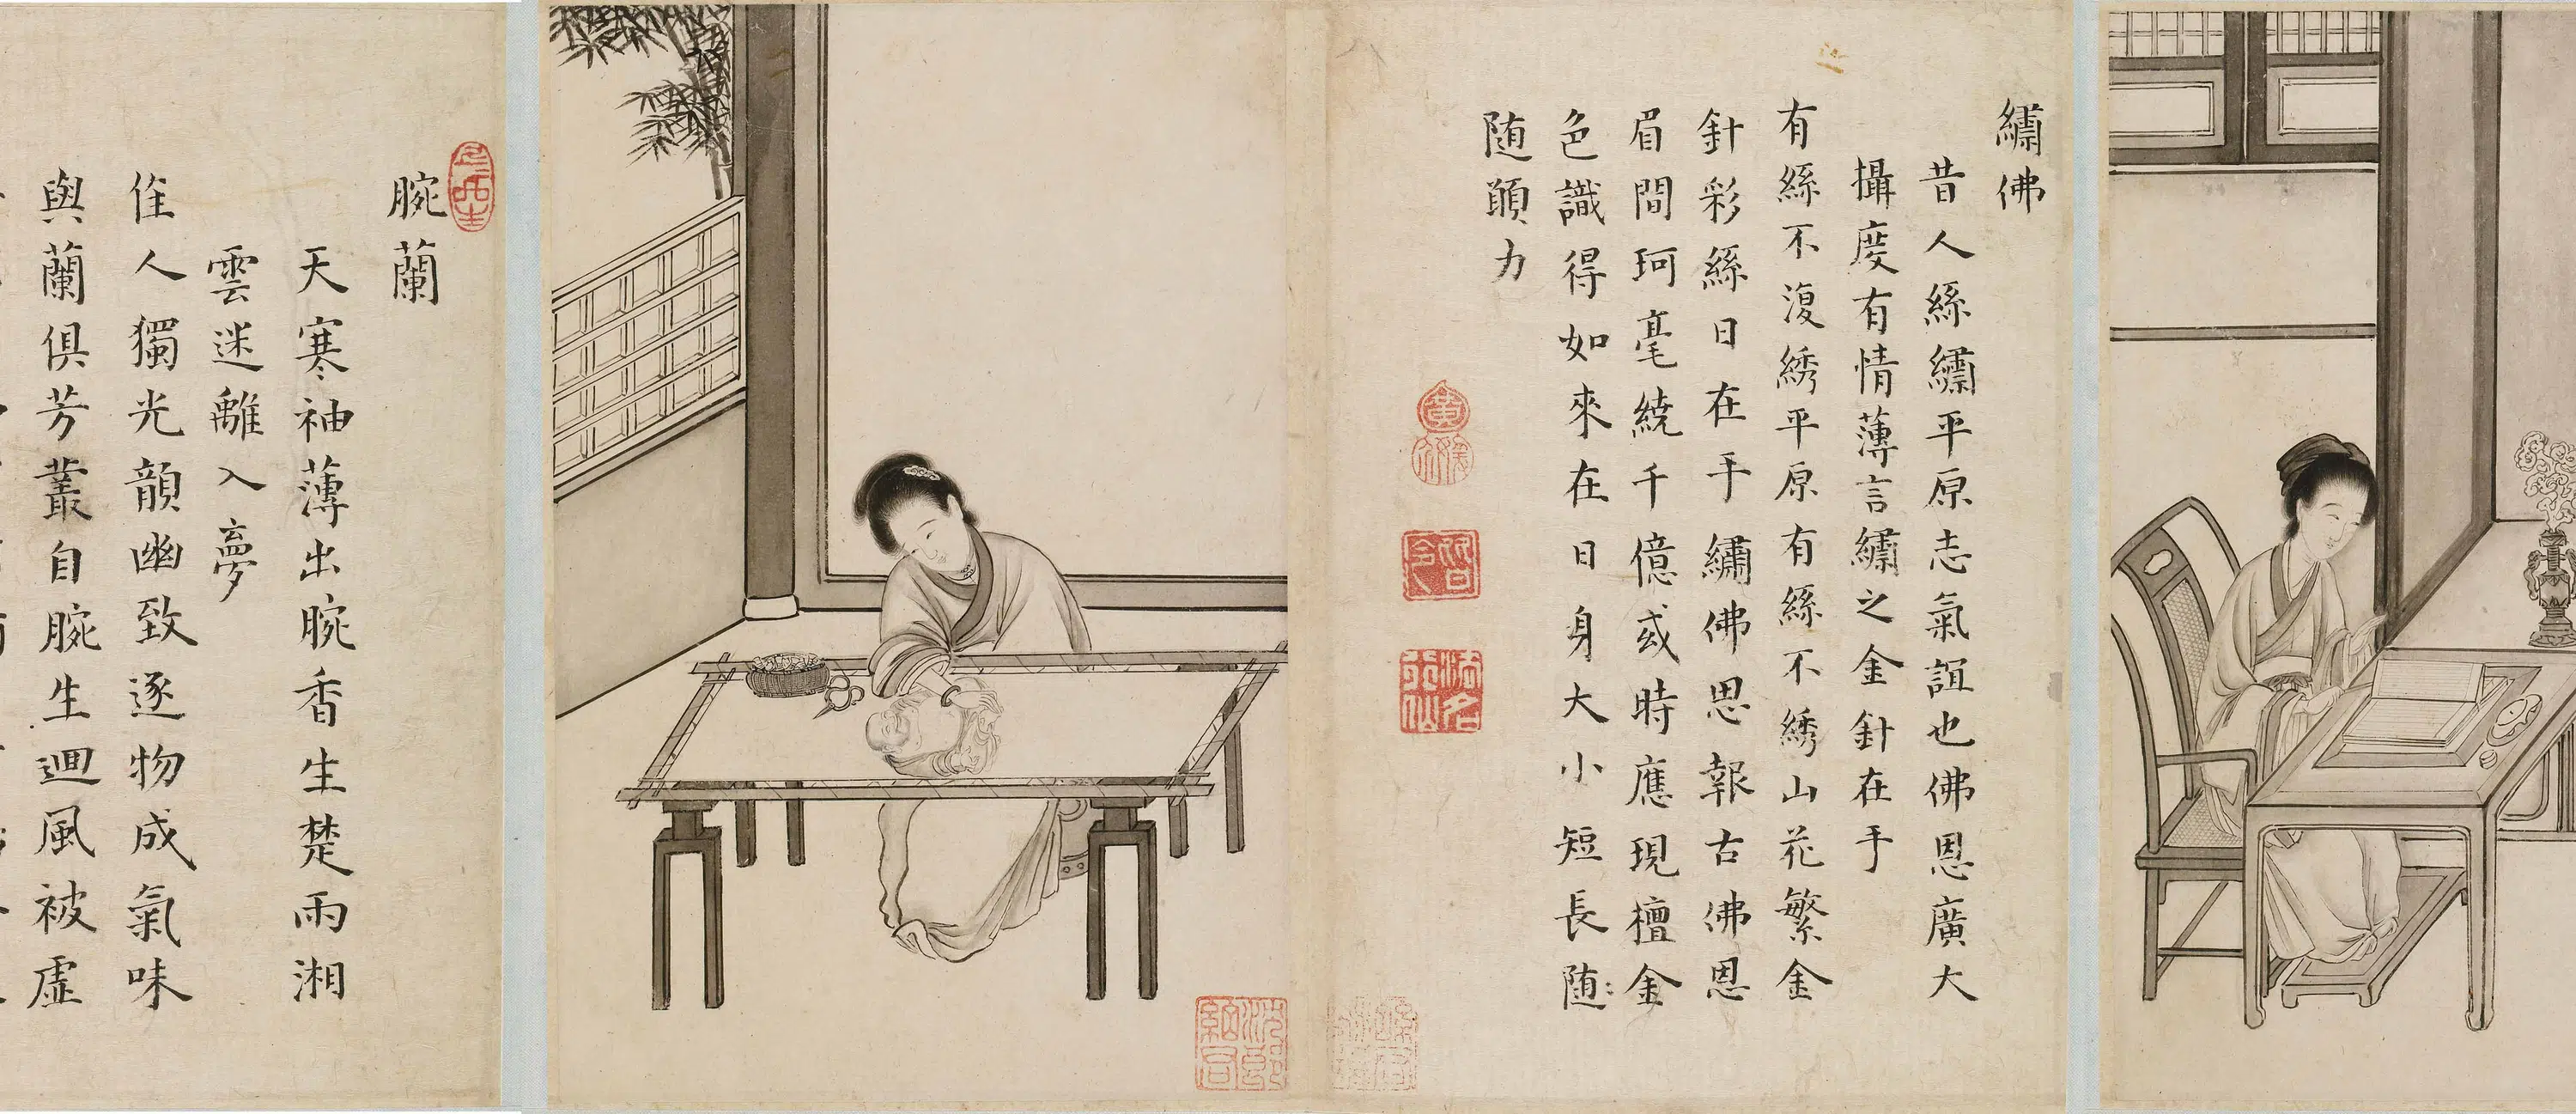 繡佛
昔人絲繡平原志氣誼也佛恩廣大
攝度有情薄言繡之金針在手
有絲不復綉平原有絲不綉山花繁金
針彩絲日在手繡佛思報古佛恩
眉間珂毫繞千億或時應現檀金
色識得如來在日身大小短長随〻
随願力
腕蘭
天寒袖薄出腕香生楚雨湘
雲迷離入夢
佳人獨光韻幽致逐物成氣味
與蘭俱芳叢自腕生迴風被虛